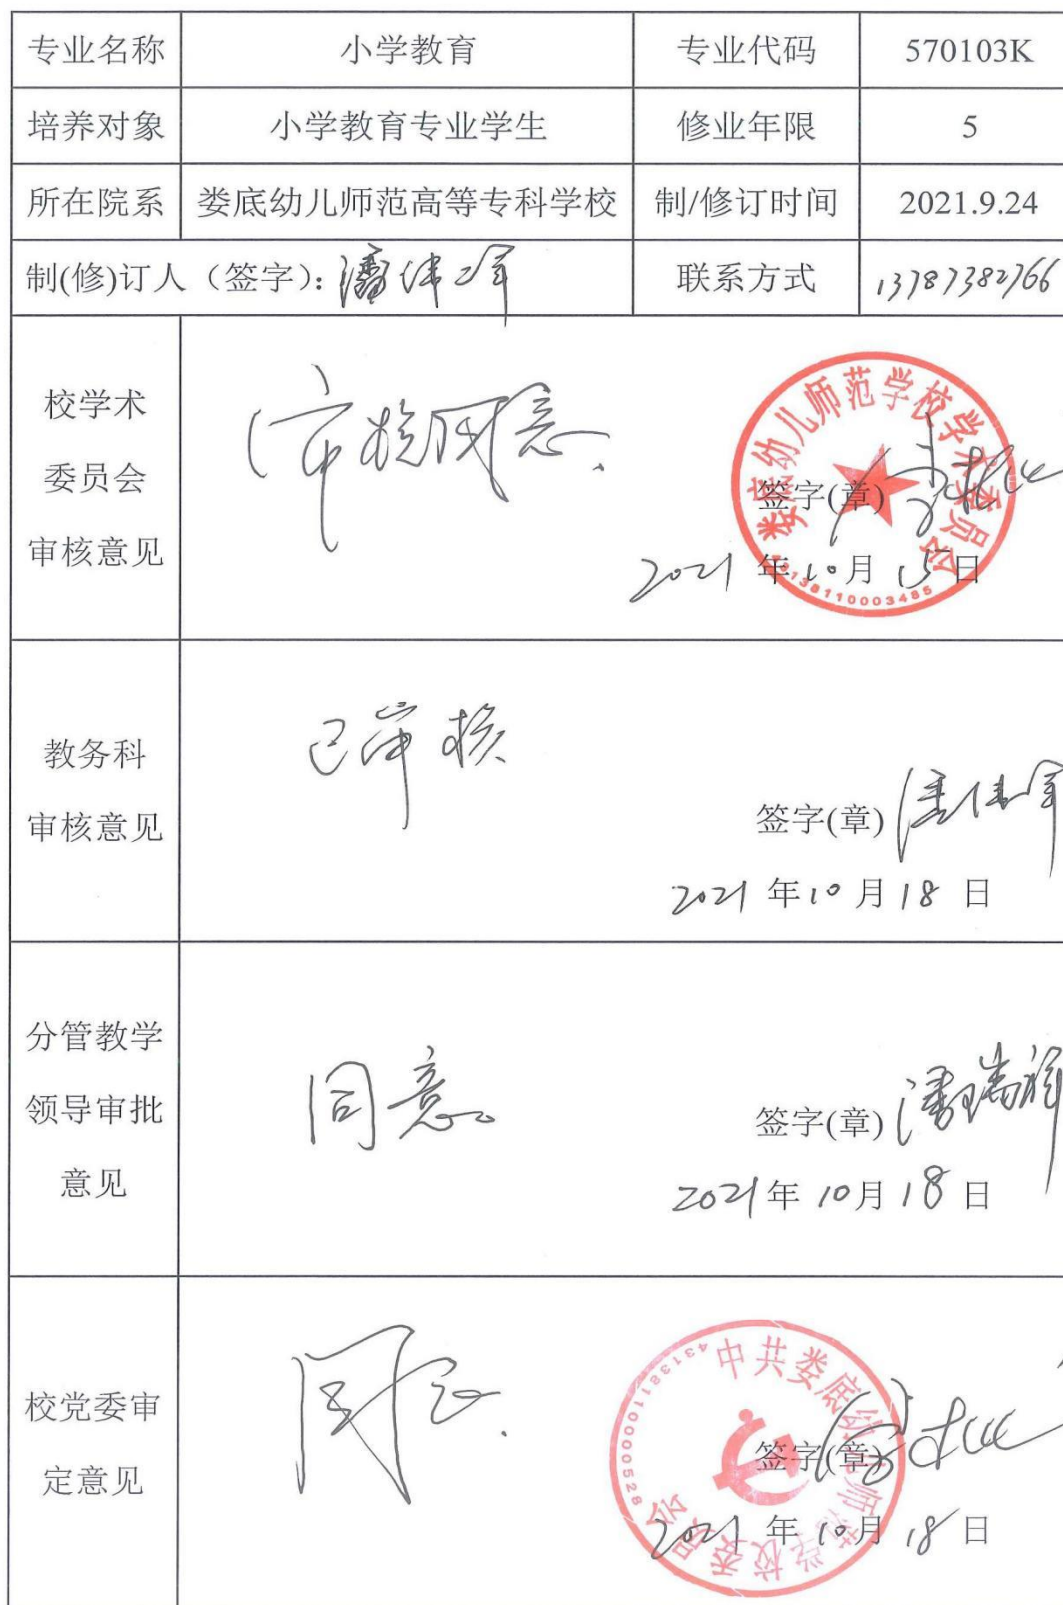 专业名称 小学教育 专业代码 570103K
培养对象 小学教育专业学生 修业年限 5
所在院系 娄底幼儿师范高等专科学校 制/修订时间 2021.9.24
制(修)订人（签字）： 联系方式 13787382766
校学术
委员会
审核意见
审核同意.
娄底幼儿师范学校学术委员会
签字(章)
2021 年 10 月 15 日
43138110003485
教务科
审核意见
已审核
签字(章)
2021 年 10 月 18 日
分管教学
领导审批
意见
同意
签字(章) 潘瑞祥
2021 年 10 月 18 日
校党委审
定意见
同意.
中共娄底幼儿师范学校委员会
签字(章)
2021 年 10 月 18 日